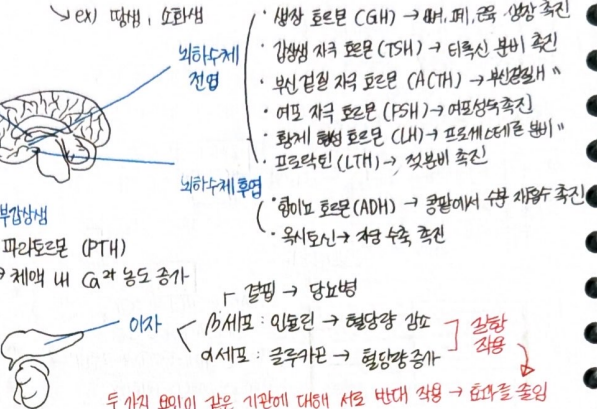 ↳ ex) 땀샘, 소화샘
뇌하수체 전엽
· 생장 호르몬 (GH) → 뼈, 근육 생장 촉진
· 갑상샘 자극 호르몬 (TSH) → 티록신 분비 촉진
· 부신 겉질 자극 호르몬 (ACTH) → 부신겉질 "
· 여포 자극 호르몬 (FSH) → 여포성숙촉진
· 황체 형성 호르몬 (LH) → 프로게스테론 분비 "
· 프로락틴 (LTH) → 젖분비 촉진
뇌하수체 후엽
· 항이뇨 호르몬 (ADH) → 콩팥에서 수분 재흡수 촉진
· 옥시토신 → 자궁 수축 촉진
부갑상샘
파라토르몬 (PTH)
→ 체액 내 Ca²⁺ 농도 증가
이자
결핍 → 당뇨병
β세포 : 인슐린 → 혈당량 감소
α세포 : 글루카곤 → 혈당량 증가
길항 작용
두 가지 요인이 같은 기관에 대해 서로 반대 작용 → 효과를 줄임